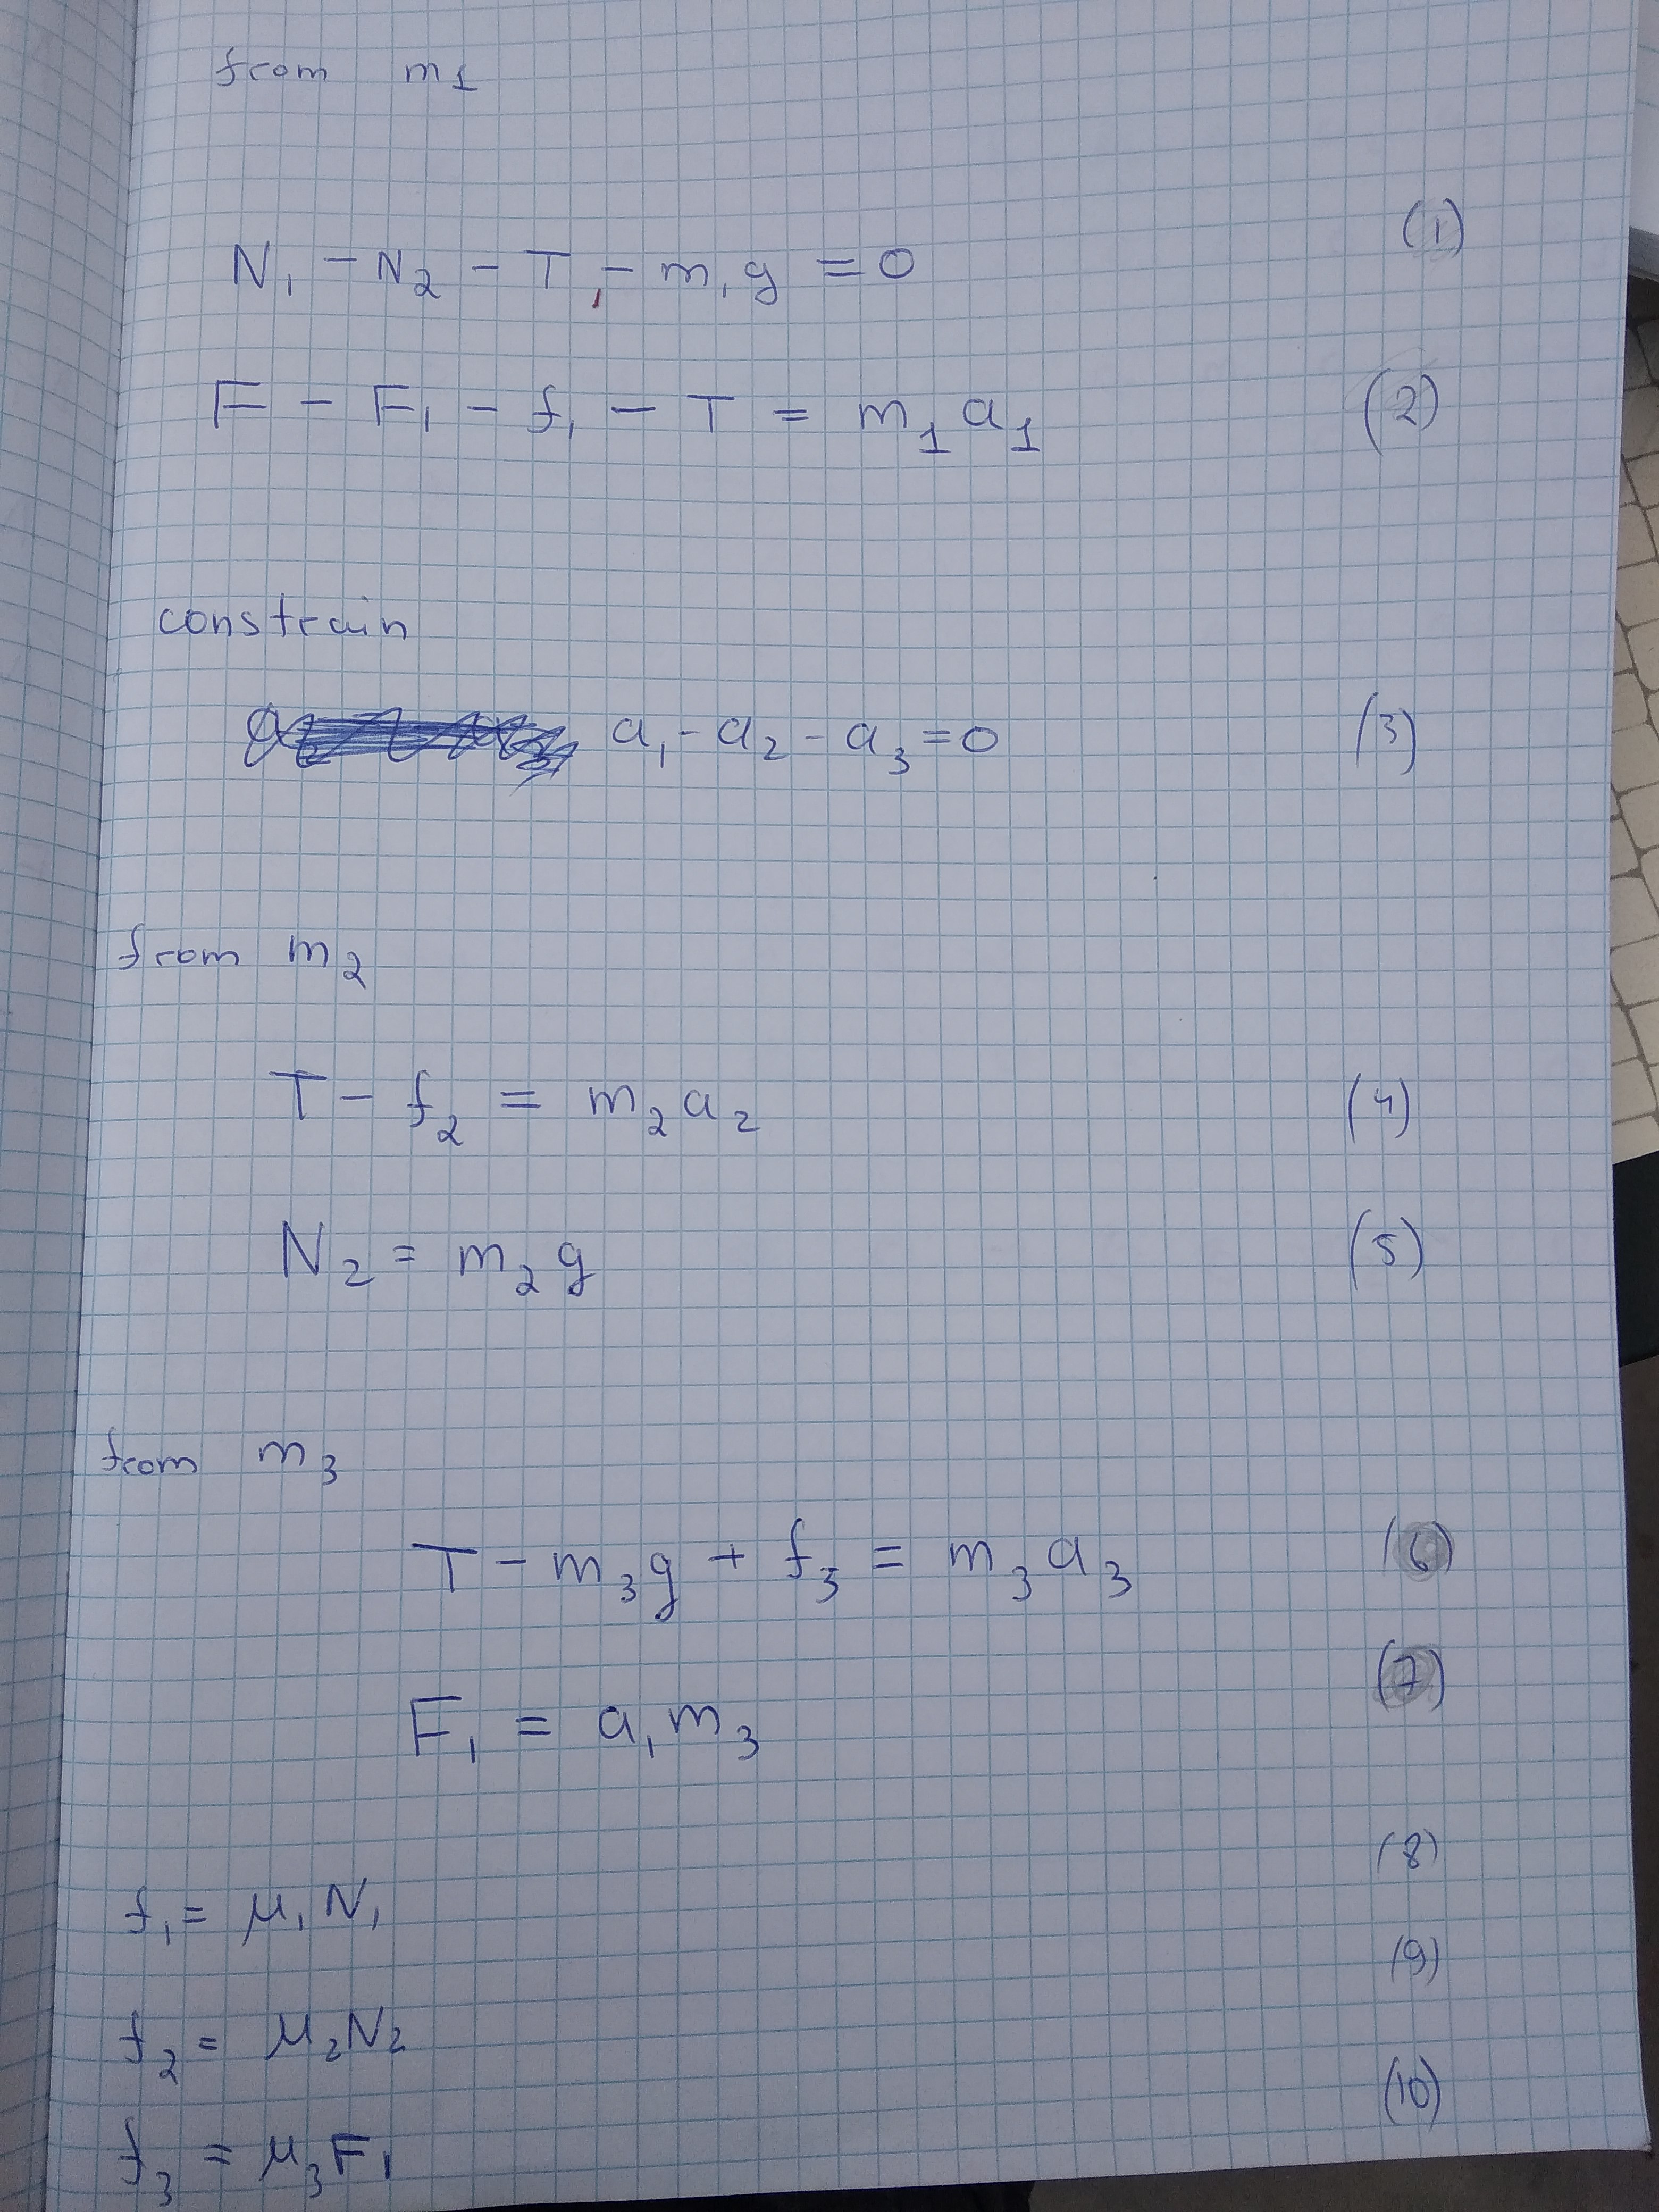 from m1
N₁ - N₂ - T, - m₁g = 0 (1)
F - F₁ - f₁ - T = m₁ a₁ (2)
constrain
a₁ - a₂ - a₃ = 0 (3)
from m₂
T - f₂ = m₂a₂ (4)
N₂ = m₂g (5)
from m₃
T - m₃g + f₃ = m₃a₃ (6)
F₁ = a₁m₃ (7)
f₁ = μ₁N₁ (8)
f₂ = μ₂N₂ (9)
f₃ = μ₃F₁ (10)